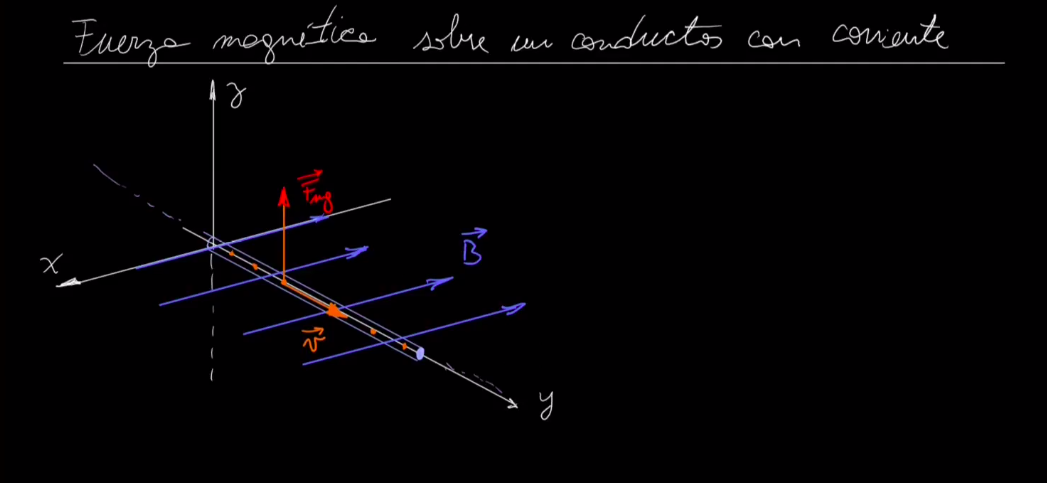 Fuerza magnética sobre un conductos con corriente
z
F⃗mg
B⃗
x
v⃗
y